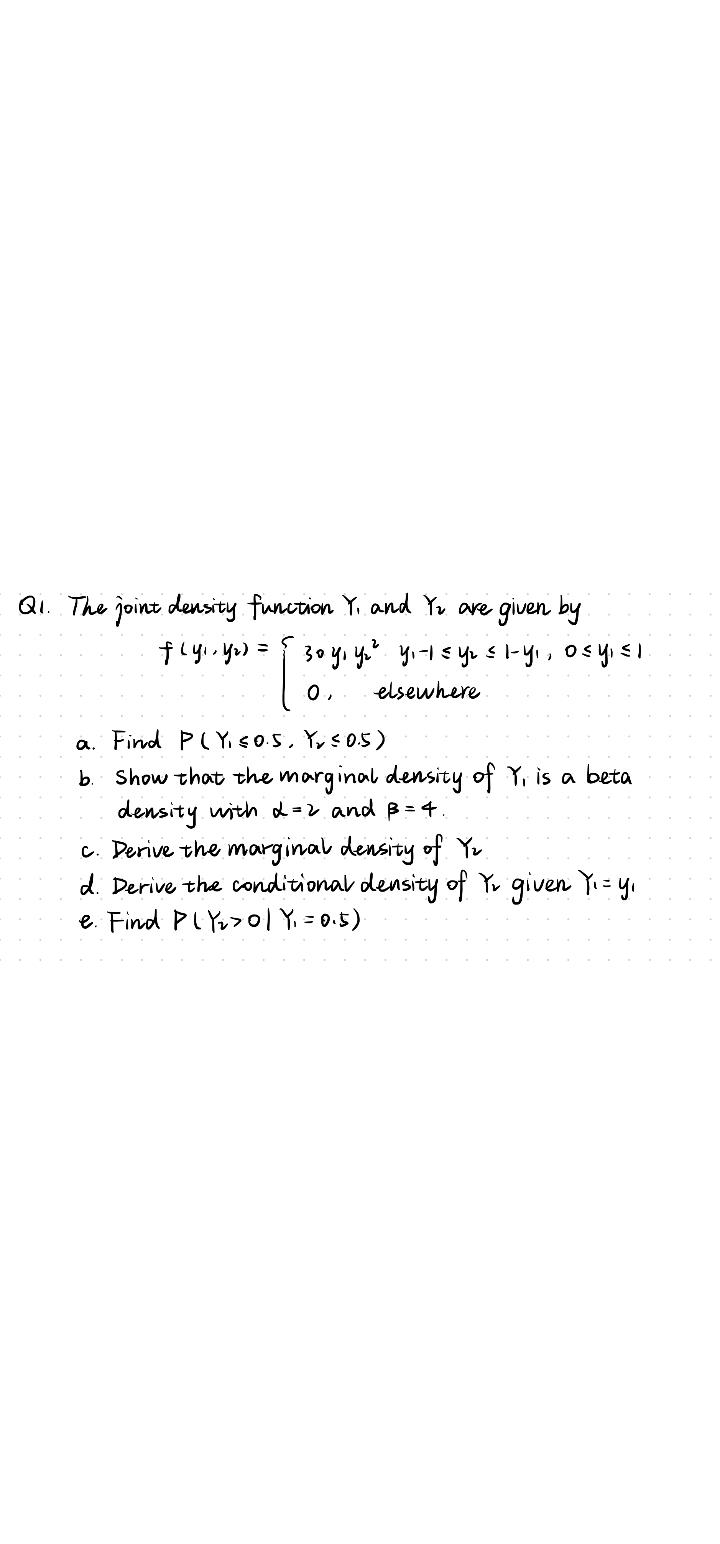 Q1. The joint density function Y₁ and Y₂ are given by
f(y₁,y₂) = { 30 y₁ y₂² y₁-1 ≤ y₂ ≤ 1-y₁, 0 ≤ y₁ ≤ 1
0, elsewhere
a. Find P(Y₁ ≤ 0.5, Y₂ ≤ 0.5)
b. Show that the marginal density of Y₁ is a beta
density with α=2 and β=4.
c. Derive the marginal density of Y₂
d. Derive the conditional density of Y₂ given Y₁=y₁
e. Find P(Y₂>0|Y₁=0.5)